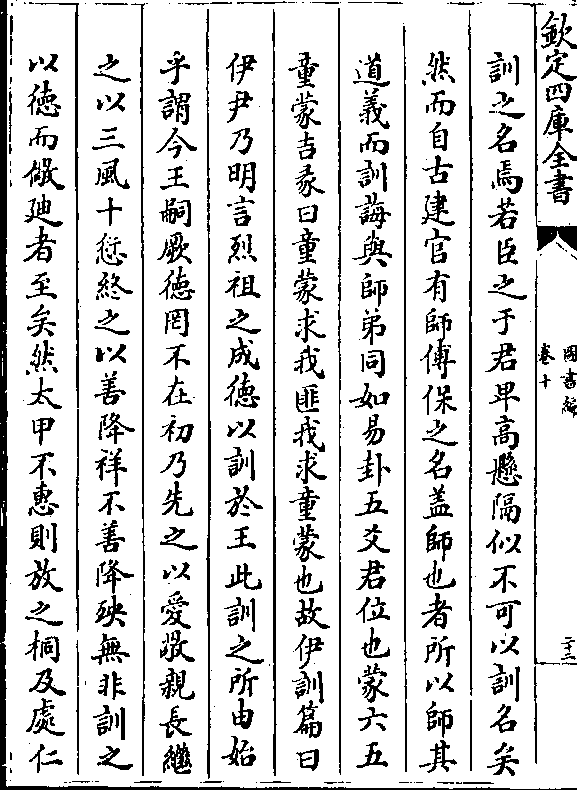 欽定四庫全書
圖書編
卷十
二十二
訓之名焉若臣之于君卑高懸隔似不可以訓名矣
然而自古建官有師傅保之名盖師也者所以師其
道義而訓誨與師弟同如易卦五爻君位也蒙六五
童蒙吉彖曰童蒙求我匪我求童蒙也故伊訓篇曰
伊尹乃明言烈祖之成德以訓於王此訓之所由始
乎謂今王嗣厥德罔不在初乃先之以愛敬親長繼
之以三風十愆終之以善降祥不善降殃無非訓之
以德而儆廸者至矣然太甲不惠則放之桐及處仁